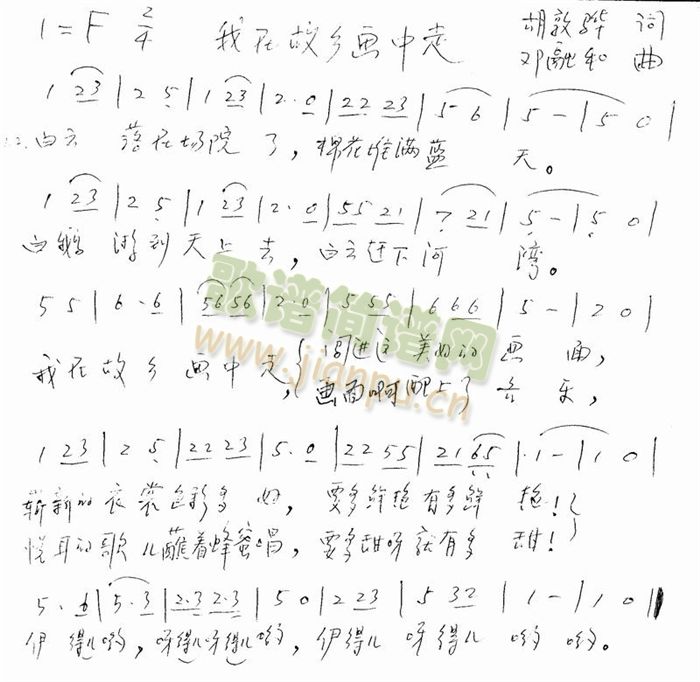 1=F 2/4 我在故乡画中走 胡敦骅 词
邓融和 曲
1 23 | 2 5 | 1 23 | 2· 0 | 22 23 | 5 6 | 5 - | 5 0 |
白云 落在场院 了，棉花堆满蓝 天。
1 23 | 2 5 | 1 23 | 2· 0 | 55 21 | 7 21 | 5 - | 5 0 |
白鹅 游到天上去，白云迁下河 湾。
5 5 | 6 · 6 | 56 56 | 2· 0 | 5 55 | 6 6 6 | 5 - | 2 0 |
我在故乡 画中走，（ 进这美的 画 面，
画面啊配上了 音 乐，
1 23 | 2 5 | 22 23 | 5· 0 | 22 55 | 21 65 | 1 - | 1 0 |
崭新的衣裳色彩多 好，要多鲜艳有多鲜 艳！
悦耳的歌儿蘸着蜂蜜唱，要多甜呀就有多 甜！
5 · 6 | 5·3 | 2·3 2·3 | 5 0 | 2 23 | 5 32 | 1 - | 1 0 |
伊 得儿哟，呀得儿呀得儿哟，伊得儿 呀得儿 哟 哟。
歌谱简谱网
www.jianpu.cn